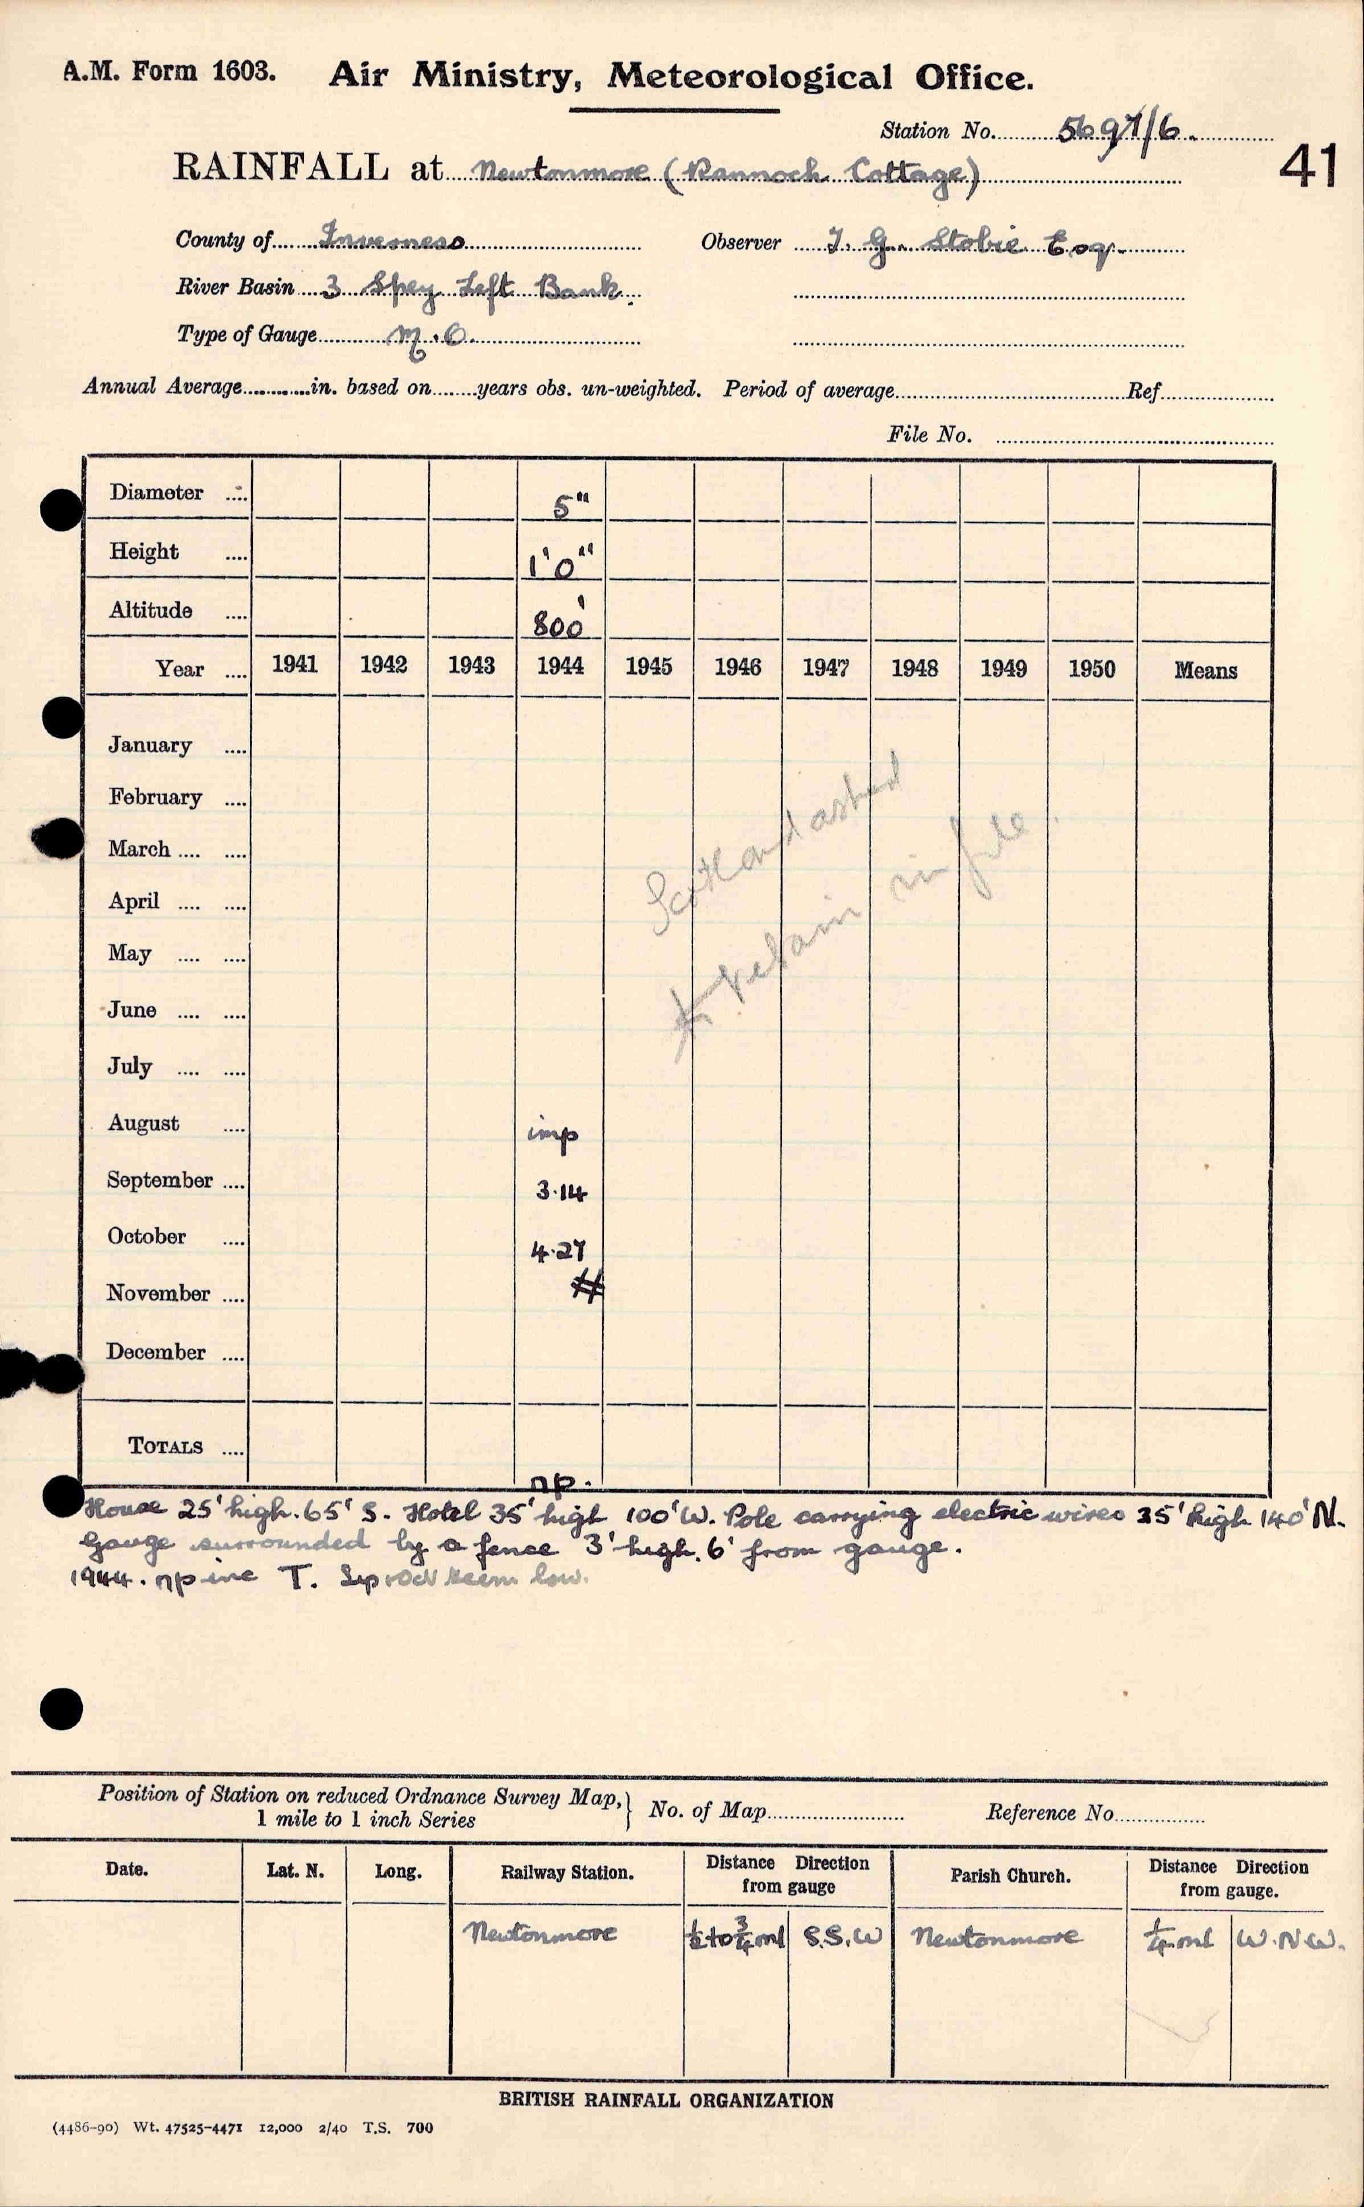 A.M. Form 1603. Air Ministry, Meteorological Office.
Station No. 5697/6.
41
RAINFALL at Newtonmore (Rannoch Cottage)
County of Inverness Observer T. G. Stobie Esq.
River Basin 3 Spey Left Bank.
Type of Gauge M.O.
Annual Average in. based on years obs. un-weighted. Period of average Ref
File No.
Diameter 5"
Height 1'0"
Altitude 800'
Year 1941 1942 1943 1944 1945 1946 1947 1948 1949 1950 Means
January
February
March
April
May
June
July
August imp
September 3.14
October 4.27
November #
December
TOTALS np.
Scotland asked
retain in file.
House 25' high. 65' S. Hotel 35' high 100' W. Pole carrying electric wires 35' high 140' N.
Gauge surrounded by a fence 3' high. 6' from gauge.
1944. np inc T. Sep Oct seem low.
Position of Station on reduced Ordnance Survey Map, } No. of Map Reference No
1 mile to 1 inch Series
Date. Lat. N. Long. Railway Station. Distance Direction from gauge Parish Church. Distance Direction from gauge.
Newtonmore 1/2 to 3/4 ml S.S.W Newtonmore 1/4 ml W.N.W.
BRITISH RAINFALL ORGANIZATION
(4486-90) Wt. 47525-4471 12,000 2/40 T.S. 700